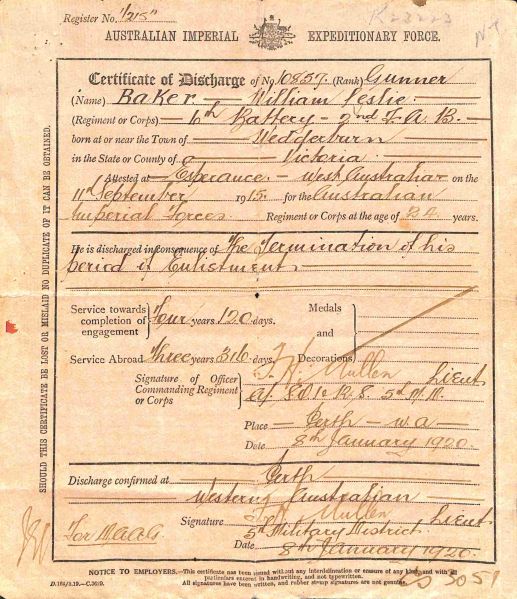 Register No. 1/215
R 23223
AUSTRALIAN IMPERIAL EXPEDITIONARY FORCE.
Certificate of Discharge of No 10857. (Rank) Gunner
(Name) Baker — William Leslie.
(Regiment or Corps) — 6th Battery — 2nd F. A. B. —
born at or near the Town of Wedderburn
in the State or County of Victoria
Attested at Esperance West Australia on the
11th September 1915 for the Australian
Imperial Forces Regiment or Corps at the age of years.
He is discharged in consequence of The Termination of his
period of Enlistment.
Service towards completion of engagement } Four years 120 days.
Medals
and
Decorations
Service Abroad Three years 316 days.
Signature of Officer Commanding Regiment or Corps } Mullen Lieut
5th M. D.
Place — Perth — W.A —
Date 8th January 1920.
Discharge confirmed at Perth
Western Australia
Signature Mullen Lieut
5th Military District
Date 8th January 1920.
For
SHOULD THIS CERTIFICATE BE LOST OR MISLAID NO DUPLICATE OF IT CAN BE OBTAINED.
NOTICE TO EMPLOYERS.—This certificate has been issued without any interlineation or erasure of any kind and with all
particulars entered in handwriting, and not typewritten.
D.184/3.19.—C.3639. All signatures have been written, and rubber stamp signatures are not genuine.